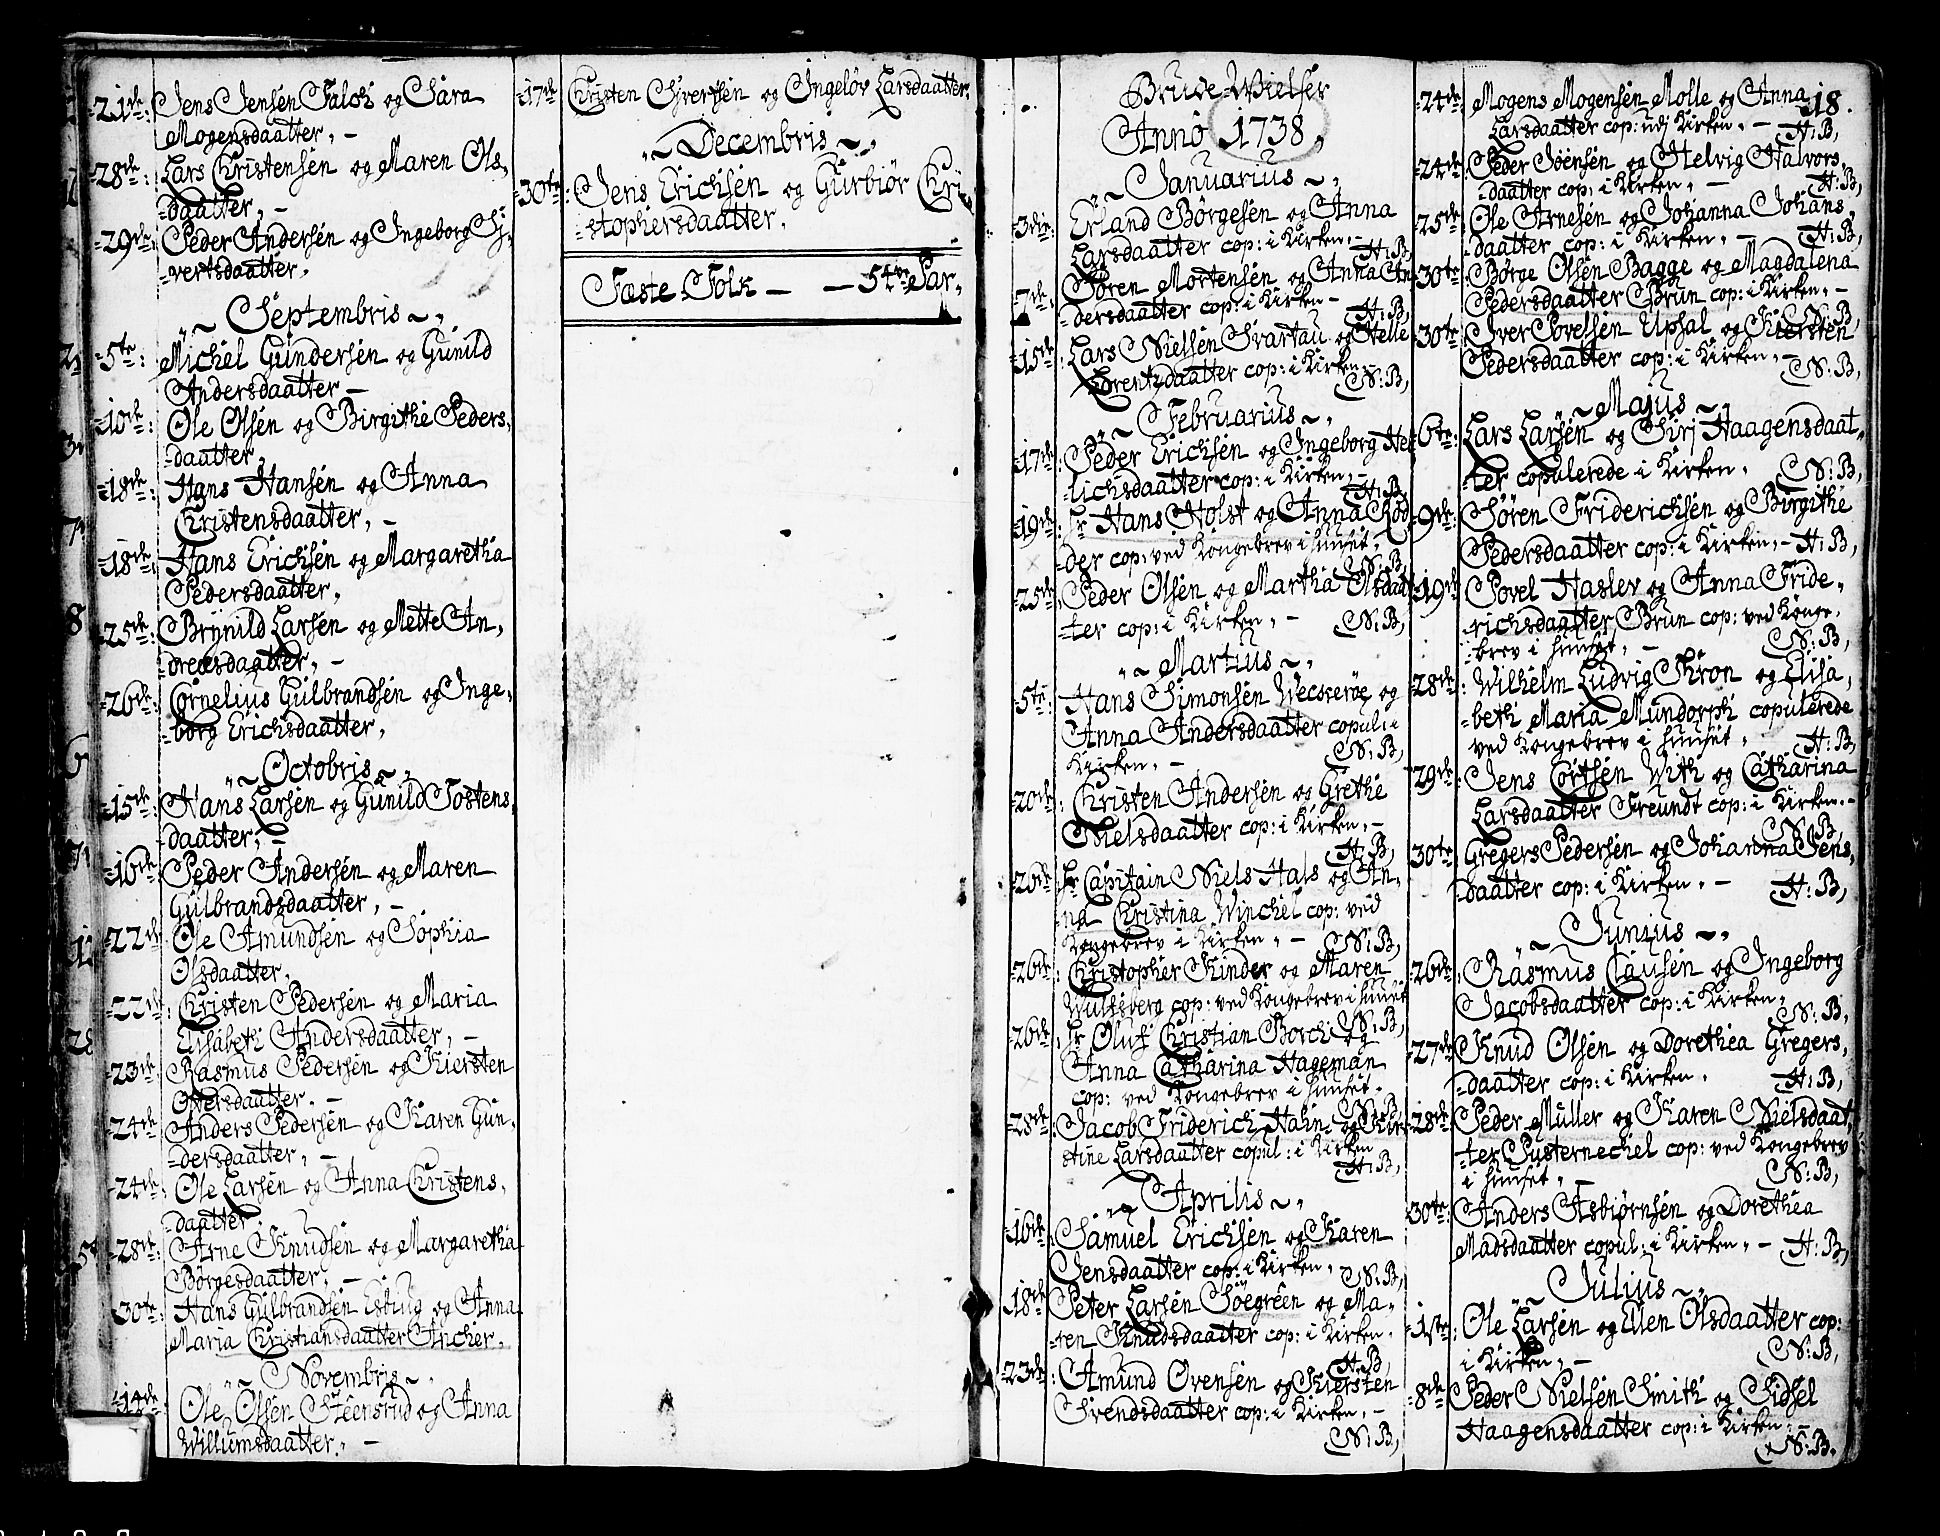 21de: Jens Jensen Falch og Sara
Mogensdaatter, -
28de: Lars Christensen og Maren Ols-
daatter, -
29de: Peder Andersen og Ingeborg Sj-
vertsdaatter,
Septembris
5te: Michel Gundersen og Gunild
Andersdaatter -
10de: Ole Olsen og Birgithe Peders-
daatter,
18de: Hans Hansen og Anna
Christensdaatter, -
18de: Hans Erichsen og Margaretha
Pedersdaatter,
25de: Brynild Larsen og Mette An-
dreæsdaatter, -
26de: Cornelius Gulbrandsen og Inge-
borg Erichsdaatter,
Octobris
15de: Hans Larsen og Gunild Tostens-
daatter, -
16de: Peder Andersen og Maren
Gulbrandsdaatter, -
22de: Ole Amundsen og Sophia
Olsdaatter,
22de: Christen Pedersen og Maria
Elisabeth Andersdaatter, -
23de: Rasmus Pedersen og Kiersten
Oversdaatter, -
24de: Anders Pedersen og Karen Gun-
dersdaatter, -
24de: Ole Larsen og Anna Christens-
daatter
28de: Arne Knudsen og Margaretha
Børgesdaatter, -
30te: Hans Gulbrandsen Esbiug og Anna
Maria Christiansdaatter Ancher,
Novembris
14de: Ole Olsen Steenstud og Anna
Willumsdaatter, -
17de: Christen Sjvertsen og Ingeløv Larsdaatter,
Decembris
30te: Jens Erichsen og Gurbiør Chri-
stophersdaatter,
Fæste Folk - - 54re Par,
Brude Vielser
Anno 1738,
Januarius
3die: Erland Børgesen og Anna
Larsdaatter cop: i Kirken, -
H: B,
7de: Søren Mortensen og Anna An-
dersdaatter cop: i Kirken -
H: B,
15de: Lars Nielsen Svartau og Helle
Lorentzdaatter cop: i Kirken -
N: B,
Februarius
17de: Peder Erichsen og Ingeborg Hen-
richsdaatter cop: i Kirken, -
H: B,
19de: Hr Hans Holst og Anna Rød-
der cop: ved Kongebrev i huuset,
N: B,
25de: Peder Olsen og Martha Olsdaat-
ter cop: i Kirken, - N: B,
Martius
5te: Hans Simonsen Weckerøe og
Anna Andersdaatter copul: i
Kirken, - N: B,
20de: Christen Andersen og Grethe
Nielsdaatter cop: i Kirken, -
H: B,
26de: Hr Capitain Niels Hals og An-
na Christina Winchel cop: ved
Kongebrev i Kirken, - N: B,
26de: Christopher Kinder og Maren
Wulfsberg cop: ved Kongebrev i huuset
N: B,
26de: Hr Oluf Christian Borch og
Anna Catharina Hageman
cop: ved Kongebrev i huuset,
N: B,
28de: Jacob Friderich Hahn og Kir-
stine Larsdaatter copul: i Kirken
H: B,
Aprilis
16de: Samuel Erichsen og Karen
Jensdaatter cop: i Kirken, N: B,
18de: Peter Larsen Soegreen og Ma-
ren Knudsdaatter cop: i Kirken,
H: B,
23de: Amund Ovensen og Kiersten
Svendsdaatter cop: i Kirken, -
N: B,
18.
24de: Mogens Mogensen Molle og Anna
Larsdaatter cop: udj Kirken, - H: B,
24de: Peder Joensen og Helvig Halvors-
daatter cop: i Kirken, - H: B,
25de: Ole Arnesen og Johanna Johans-
daatter cop: i Kirken, - H: B,
30te: Børge Olsen Bagge og Magdalena
Pedersdaatter Brun cop: i Kirken, -
N: B,
30te: Iver Povelsen Upsal og Kiersten
Pedersdaatter cop: i Kirken, -
N: B,
Majus
6te: Lars Larsen og Sirj Haagensdaat-
ter copulerede i Kirken, N: B,
9de: Søren Friderichsen og Birgithe
Pedersdaatter cop: i Kirken, - H: B,
19de: Povel Haslev og Anna Fride-
richsdaatter Brun cop: ved Konge-
brev i huuset, - N: B,
28de: Wilhelm Ludvig Thron og Elisa-
beth Maria Mundorph copulerede
ved Kongebrev i huuset, H: B,
29de: Jens Cortsen With og Catharina
Larsdaatter Freundt cop: i Kirken, -
N: B,
30te: Gregers Pedersen og Johanna Jens-
daatter cop: i Kirken, - H: B,
Junius
26de: Rasmus Clausen og Ingeborg
Jacobsdaatter cop: i Kirken,
N: B,
27de: Knud Olsen og Dorethea Gregers-
daatter cop: i Kirken, H: B,
28de: Peder Muller og Karen Nielsdaat-
ter Pusternechel cop: ved Kongebrev
i huuset, - N: B,
30te: Anders Asbiørnsen og Dorethea
Madsdaatter copul: i Kirken, - H: B,
Julius
1ste: Ole Larsen og Ellen Olsdaatter cop:
i Kirken, - N: B,
8de: Peder Nielsen Smith og Sidsel
Haagensdaatter cop: i Kirken, -
N: B,